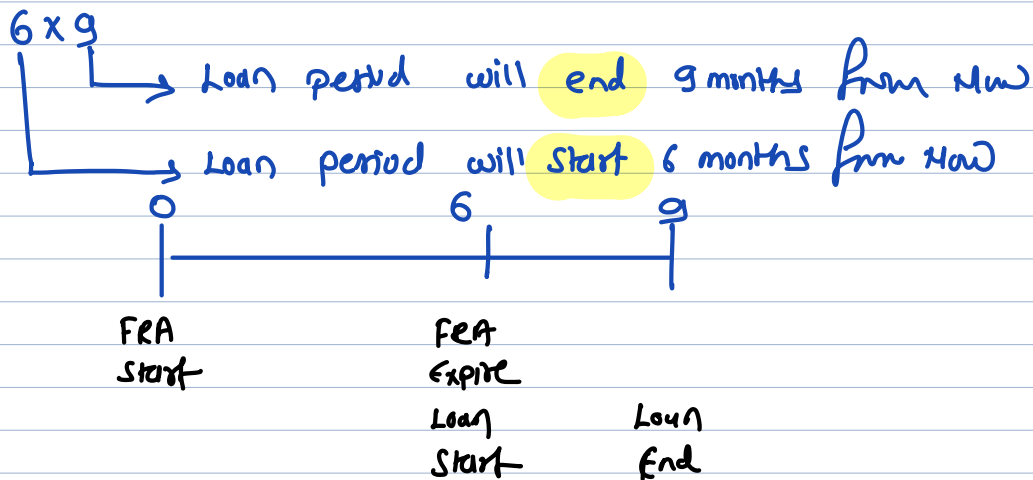 6 x 9
Loan period will end 9 months from Now
Loan period will start 6 months from Now
0 6 9
FRA FRA
Start Expire
Loan Loan
Start End